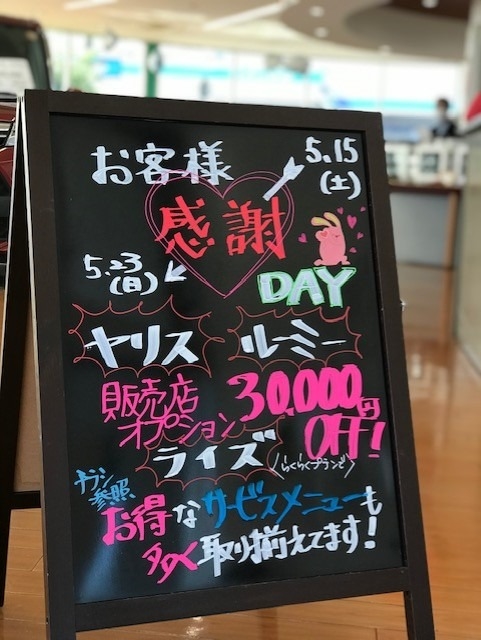 お客様
感謝
DAY
5.15
(土)
5.23
(日)
ヤリス
ルーミー
ライズ
販売店
オプション
30,000円
OFF!
らくらくプランで
チラシ
参照
お得なサービスメニューも
多く取り揃えてます!